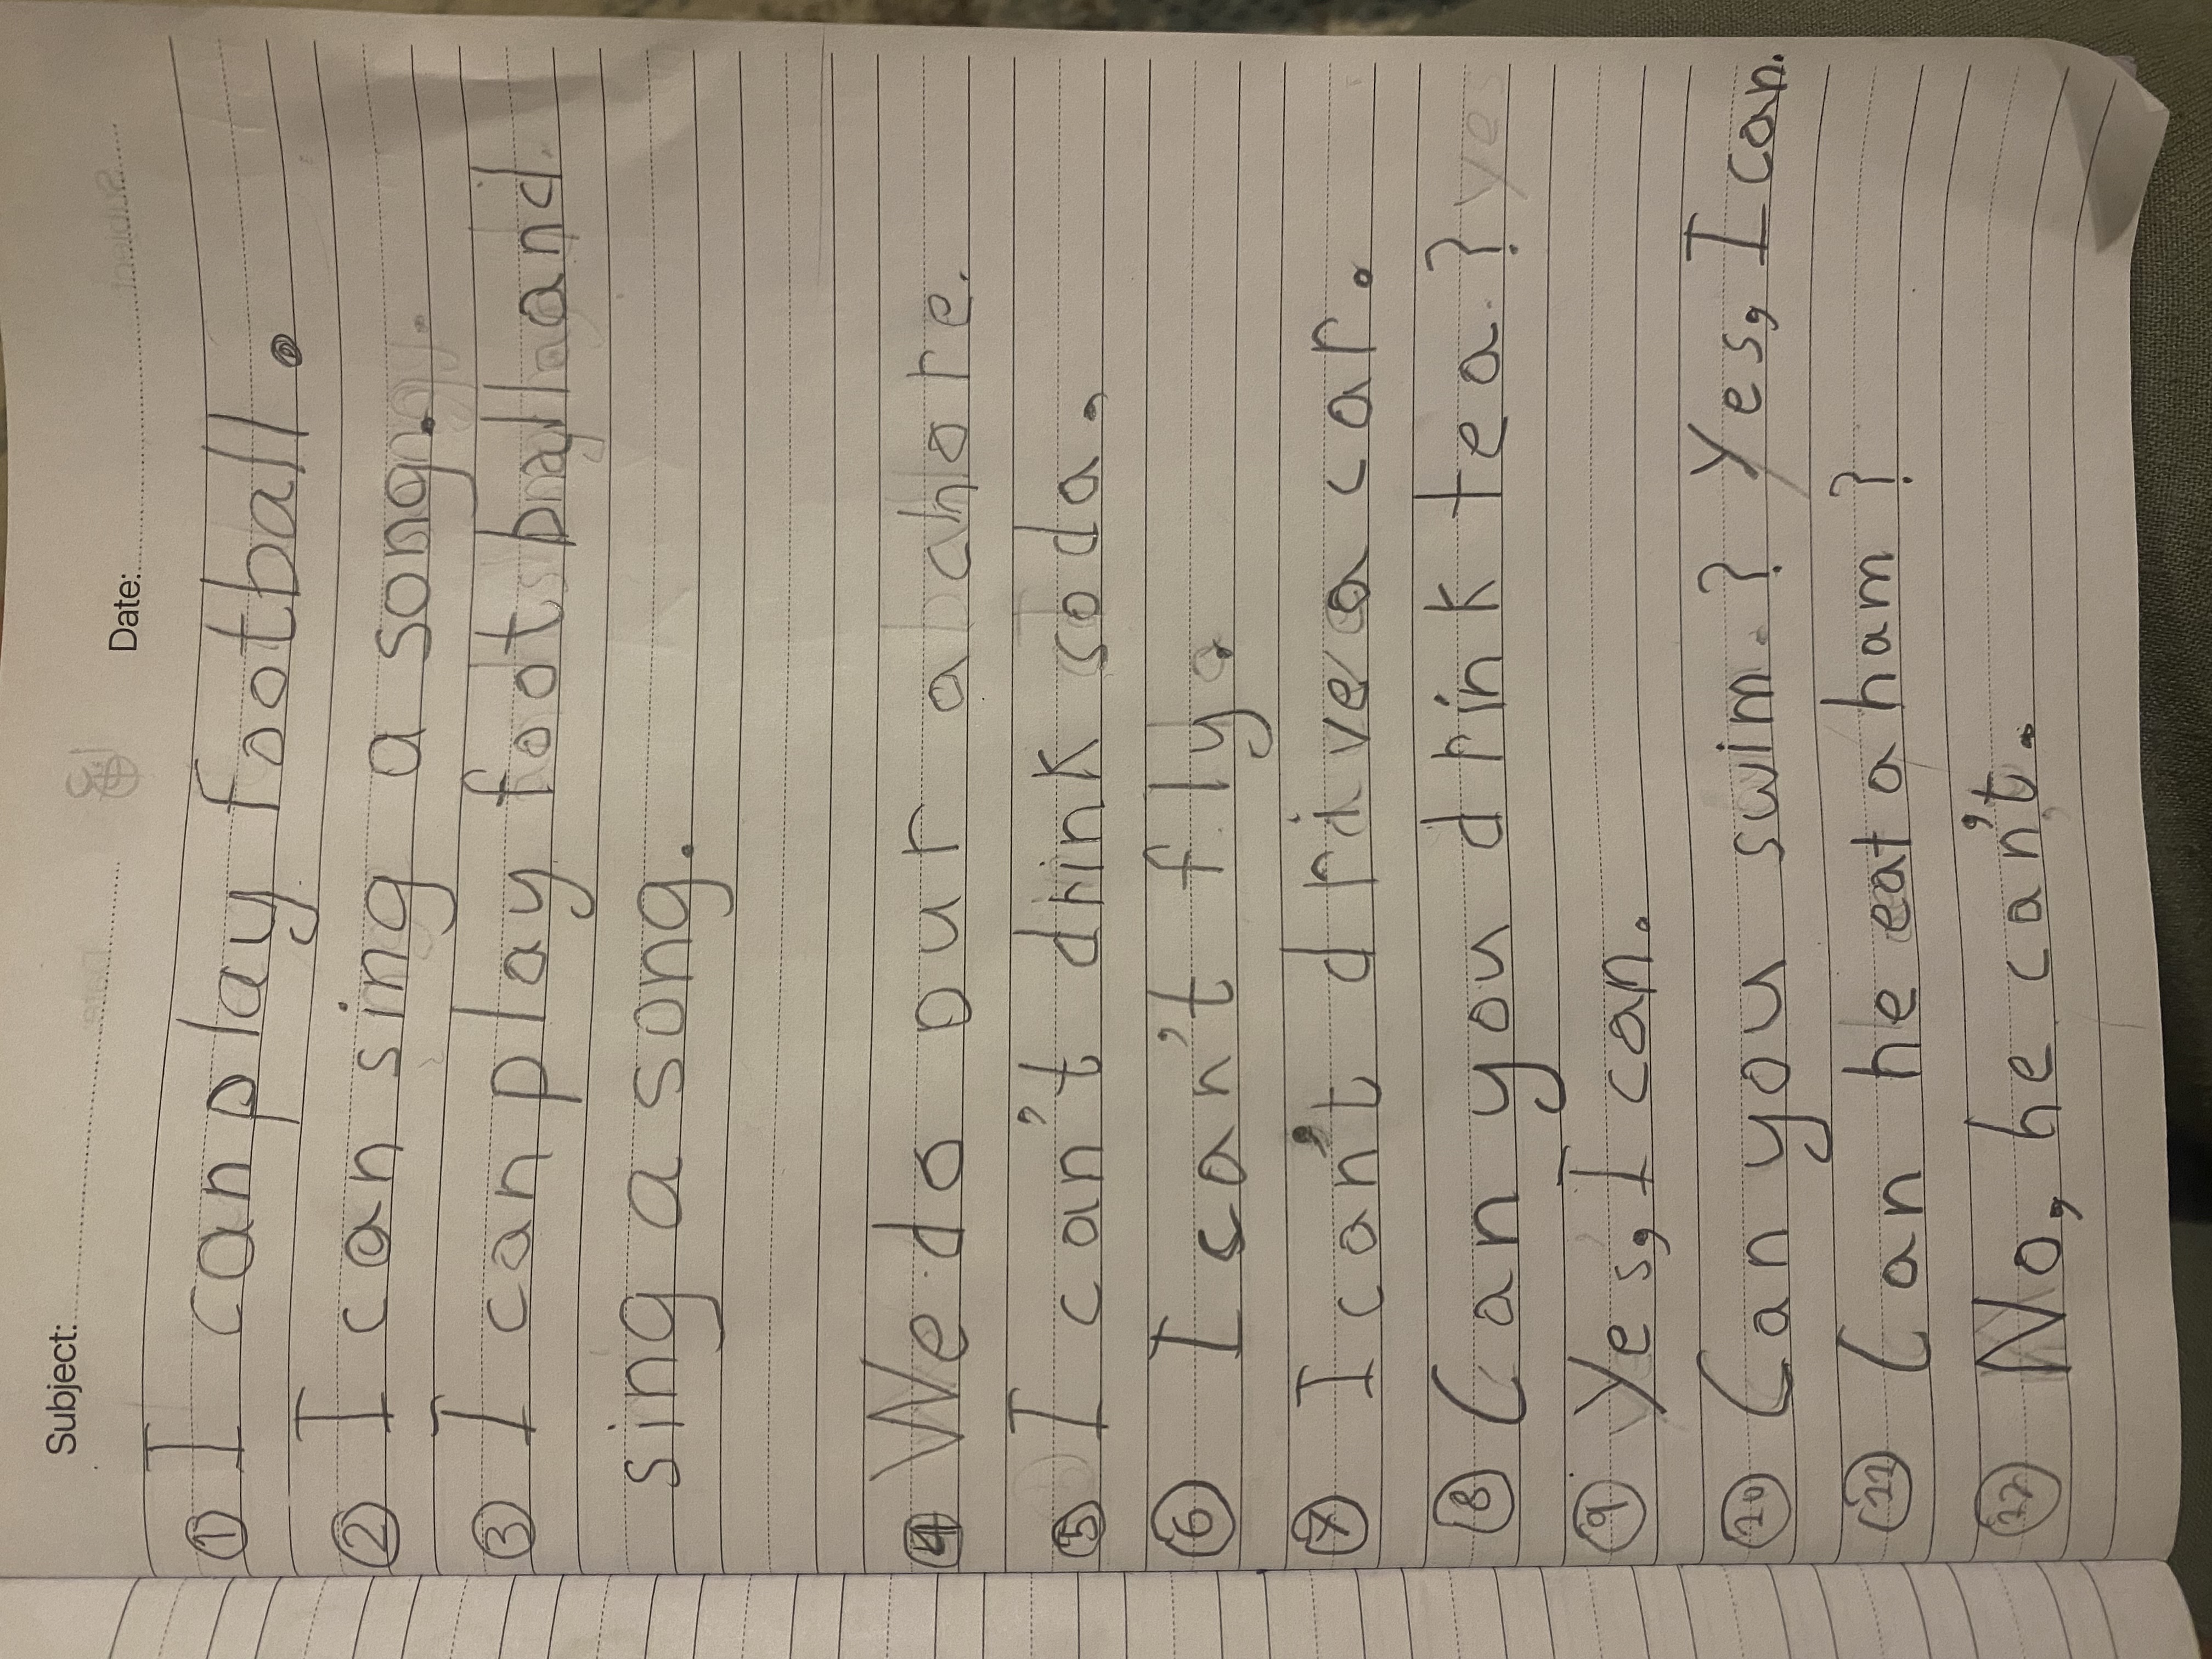 Subject: Date:
① I can play football.
② I can sing a song.
③ I can play football and
sing a song.
④ We do our a
⑤ I can't drink soda.
⑥ I can't fly.
⑦ I can't drive a car.
⑧ Can you drink tea? yes
⑨ Yes, I can.
⑩ Can you swim? Yes, I can.
⑪ Can he eat a ham?
⑫ No, he can't.